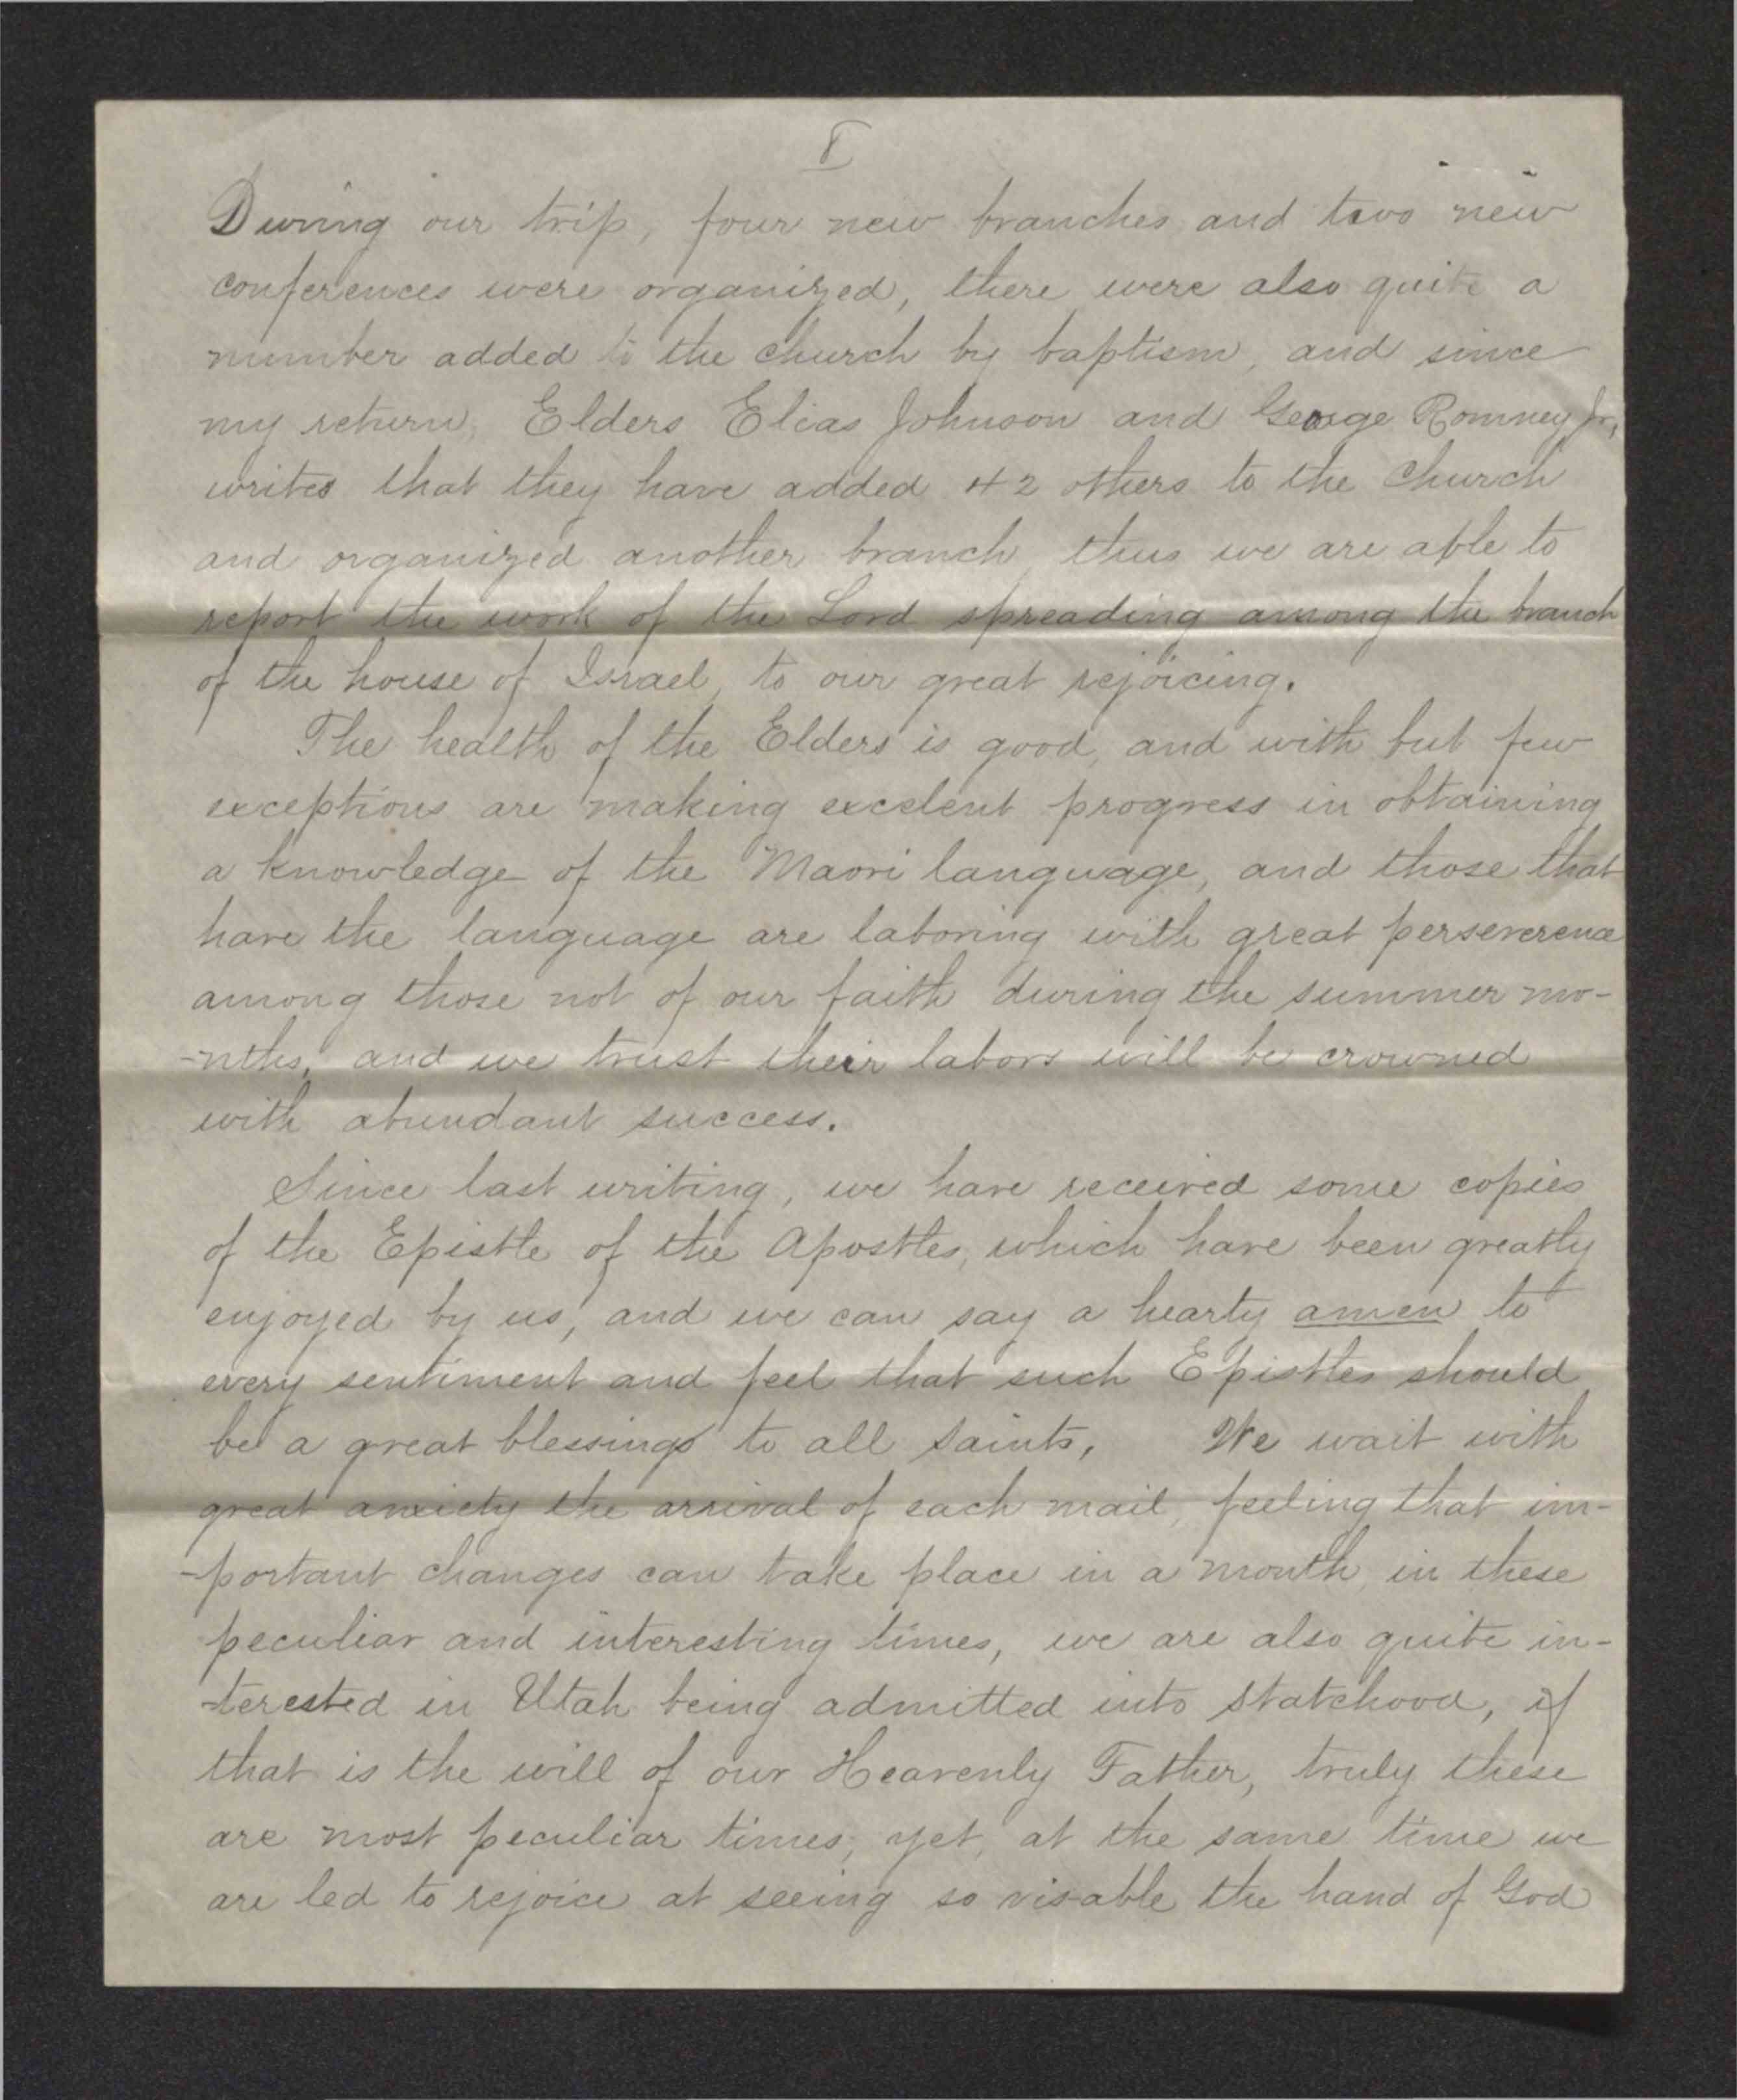 8
During our trip, four new branches and two new
conferences were organized, there were also quite a
number added to the church by baptism, and since
my return, Elders Elias Johnson and George Romney Jr,
writes that they have added 42 others to the Church
and organized another branch, thus we are able to
report the work of the Lord spreading among the branch
of the house of Israel, to our great rejoicing.
The health of the Elders is good, and with but few
exceptions are making excelent progress in obtaining
a knowledge of the Maori language, and those that
have the language are laboring with great perseverence
among those not of our faith during the summer mo-
-nths, and we trust their labors will be crowned
with abundant success.
Since last writing, we have received some copies
of the Epistle of the Apostles, which have been greatly
enjoyed by us, and we can say a hearty amen to
every sentiment and feel that such Epistles should
be a great blessings to all Saints, We wait with
great anxiety the arrival of each mail, feeling that im-
-portant changes can take place in a month, in these
peculiar and interesting times, we are also quite in-
-terested in Utah being admitted into Statehood, if
that is the will of our Heavenly Father, truly these
are most peculiar times, yet, at the same time we
are led to rejoice at seeing so visable the hand of God